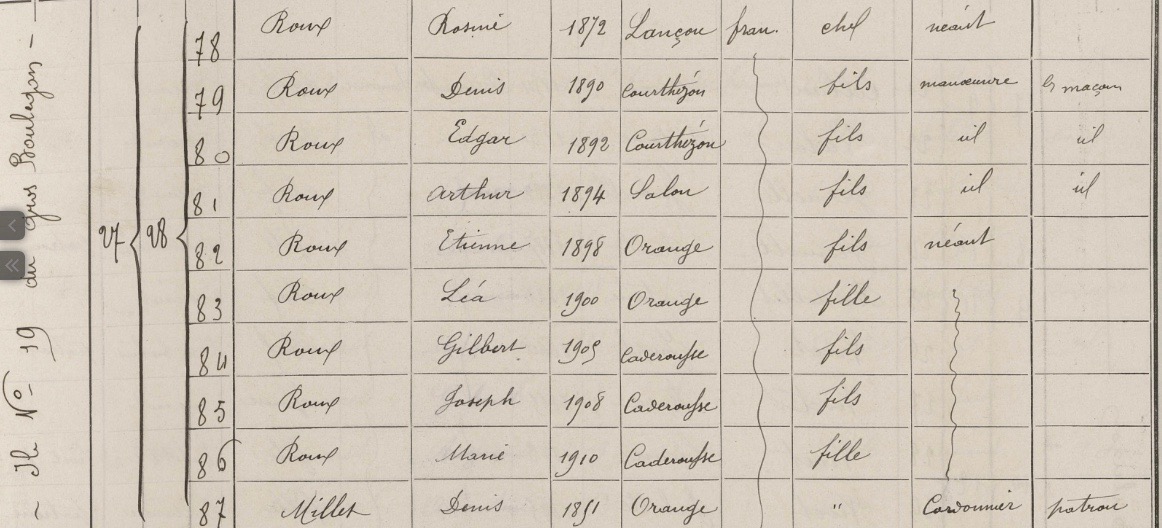 ~ Ile No 19 au gros Boulegon ~
27 28
78 Roux Rosine 1872 Lançon fran. chef néant
79 Roux Denis 1890 Courthézon fils manœuvre maçon
80 Roux Edgar 1892 Courthézon fils id id
81 Roux Arthur 1894 Salon fils id id
82 Roux Etienne 1898 Orange fils néant
83 Roux Léa 1900 Orange fille
84 Roux Gilbert 1905 Caderousse fils
85 Roux Joseph 1908 Caderousse fils
86 Roux Marie 1910 Caderousse fille
87 Millet Denis 1851 Orange " Cordonnier patron